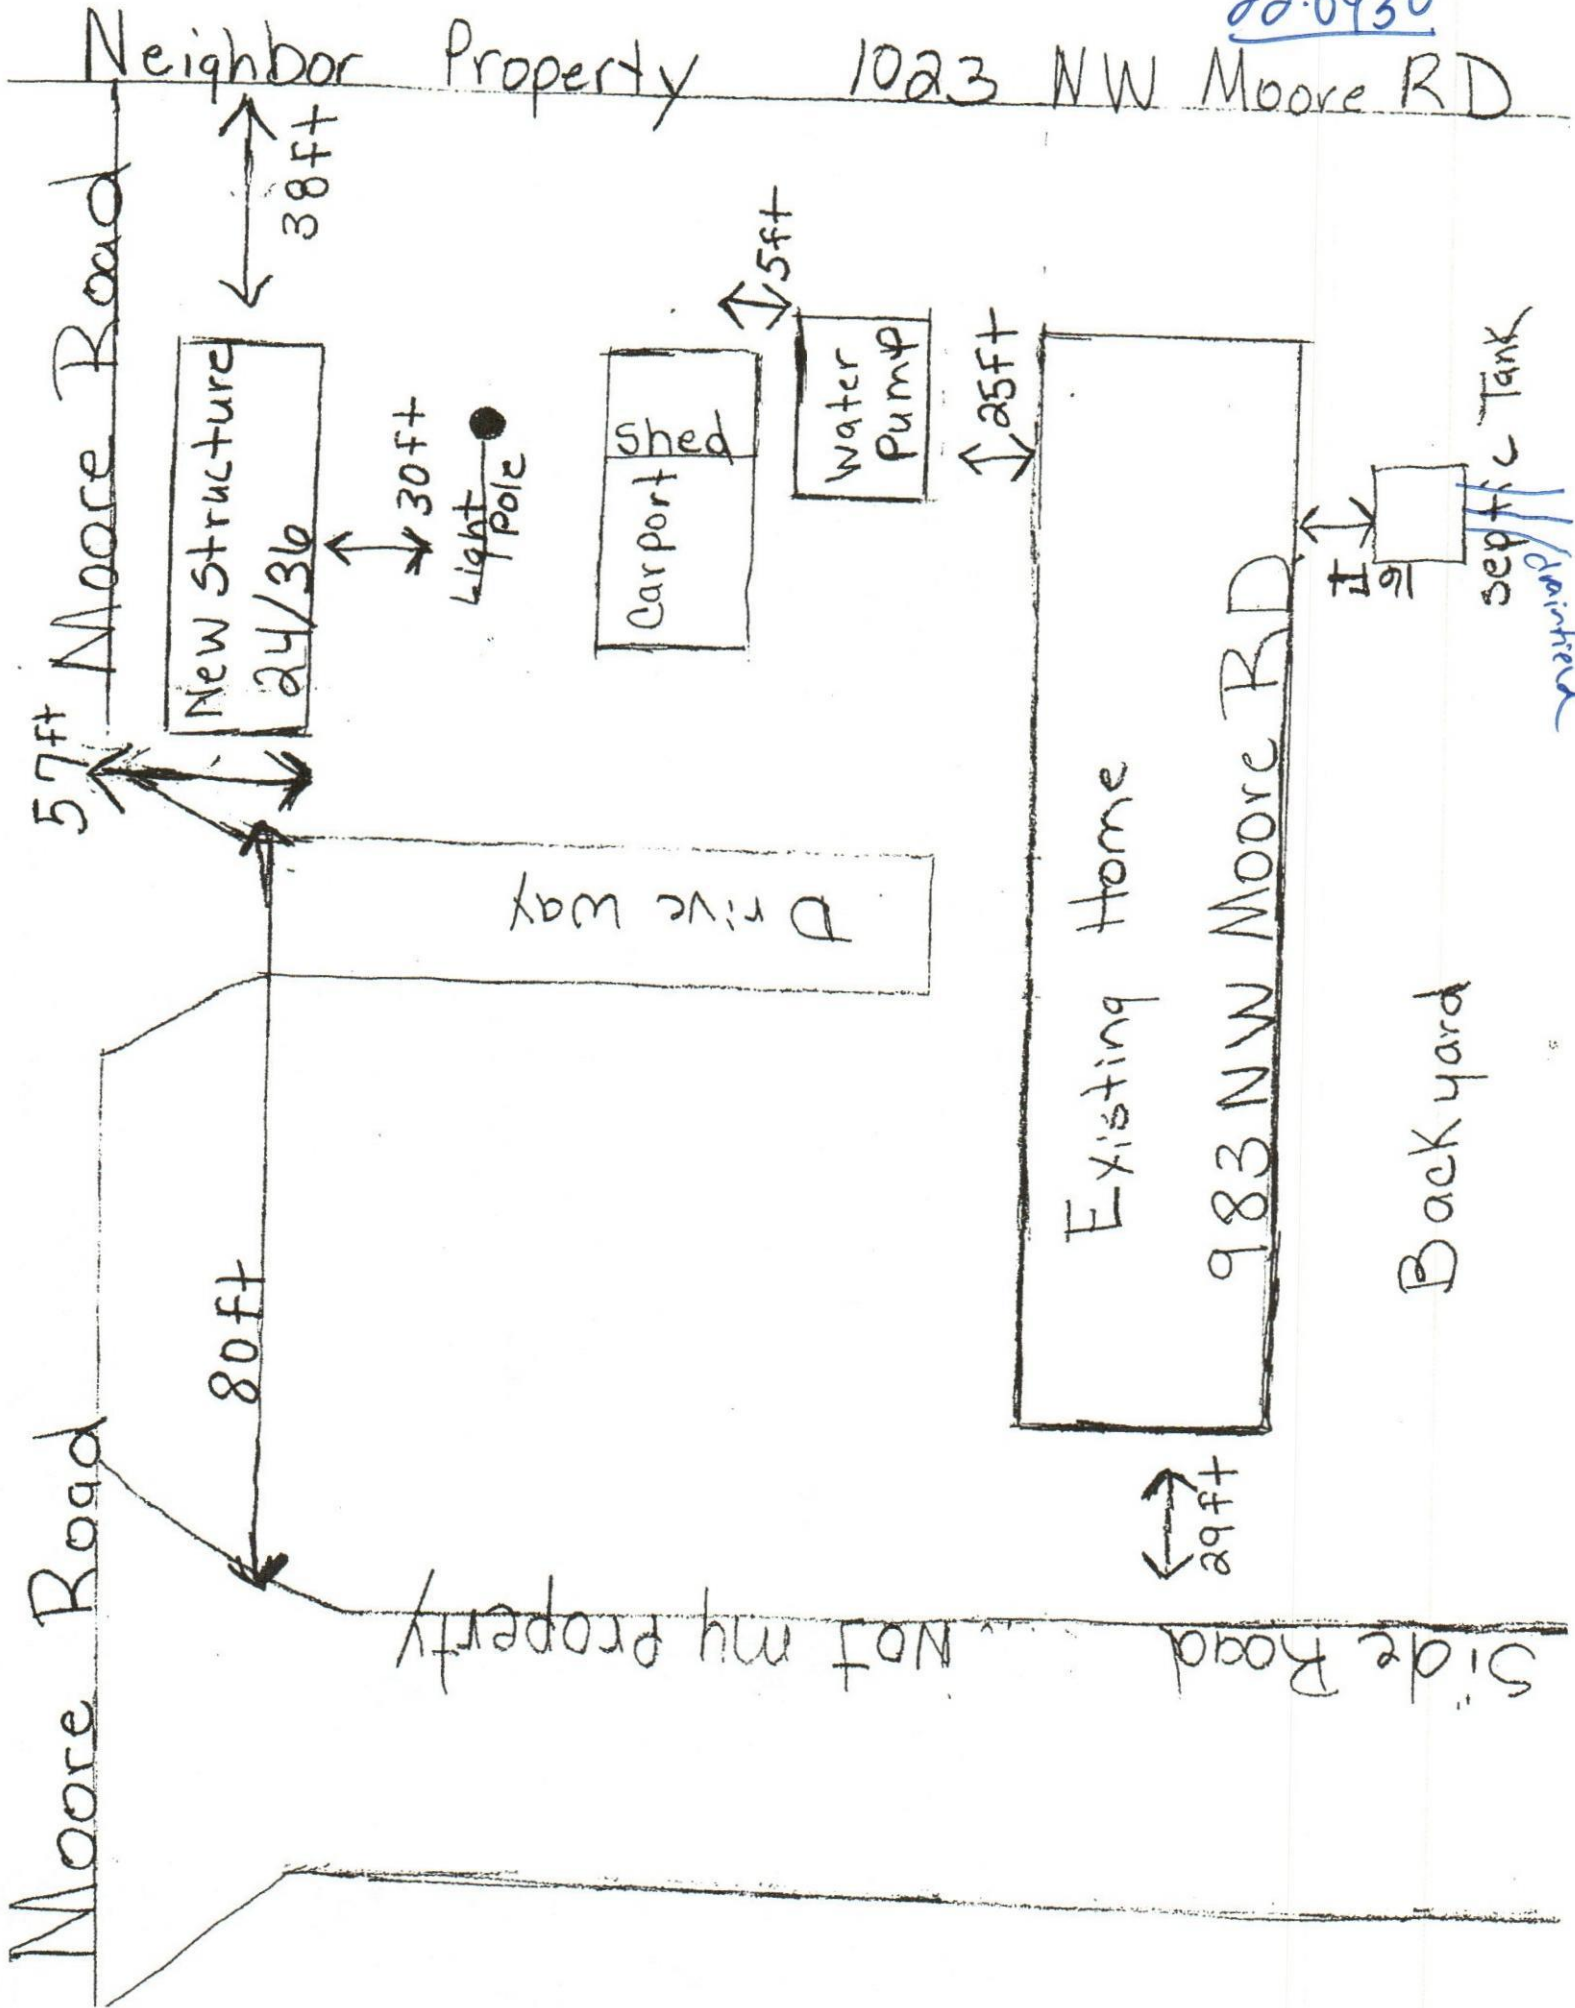 Neighbor Property 1023 NW Moore RD
Moore Road
38ft
New Structure
24/36
57ft
30ft
Light
Pole
Shed
Carport
5ft
Water
Pump
25ft
Drive way
Existing Home
983 NW Moore RD
Septic Tank
drainfield
Back yard
80ft
29ft
Moore Road
Side Road Not my Property